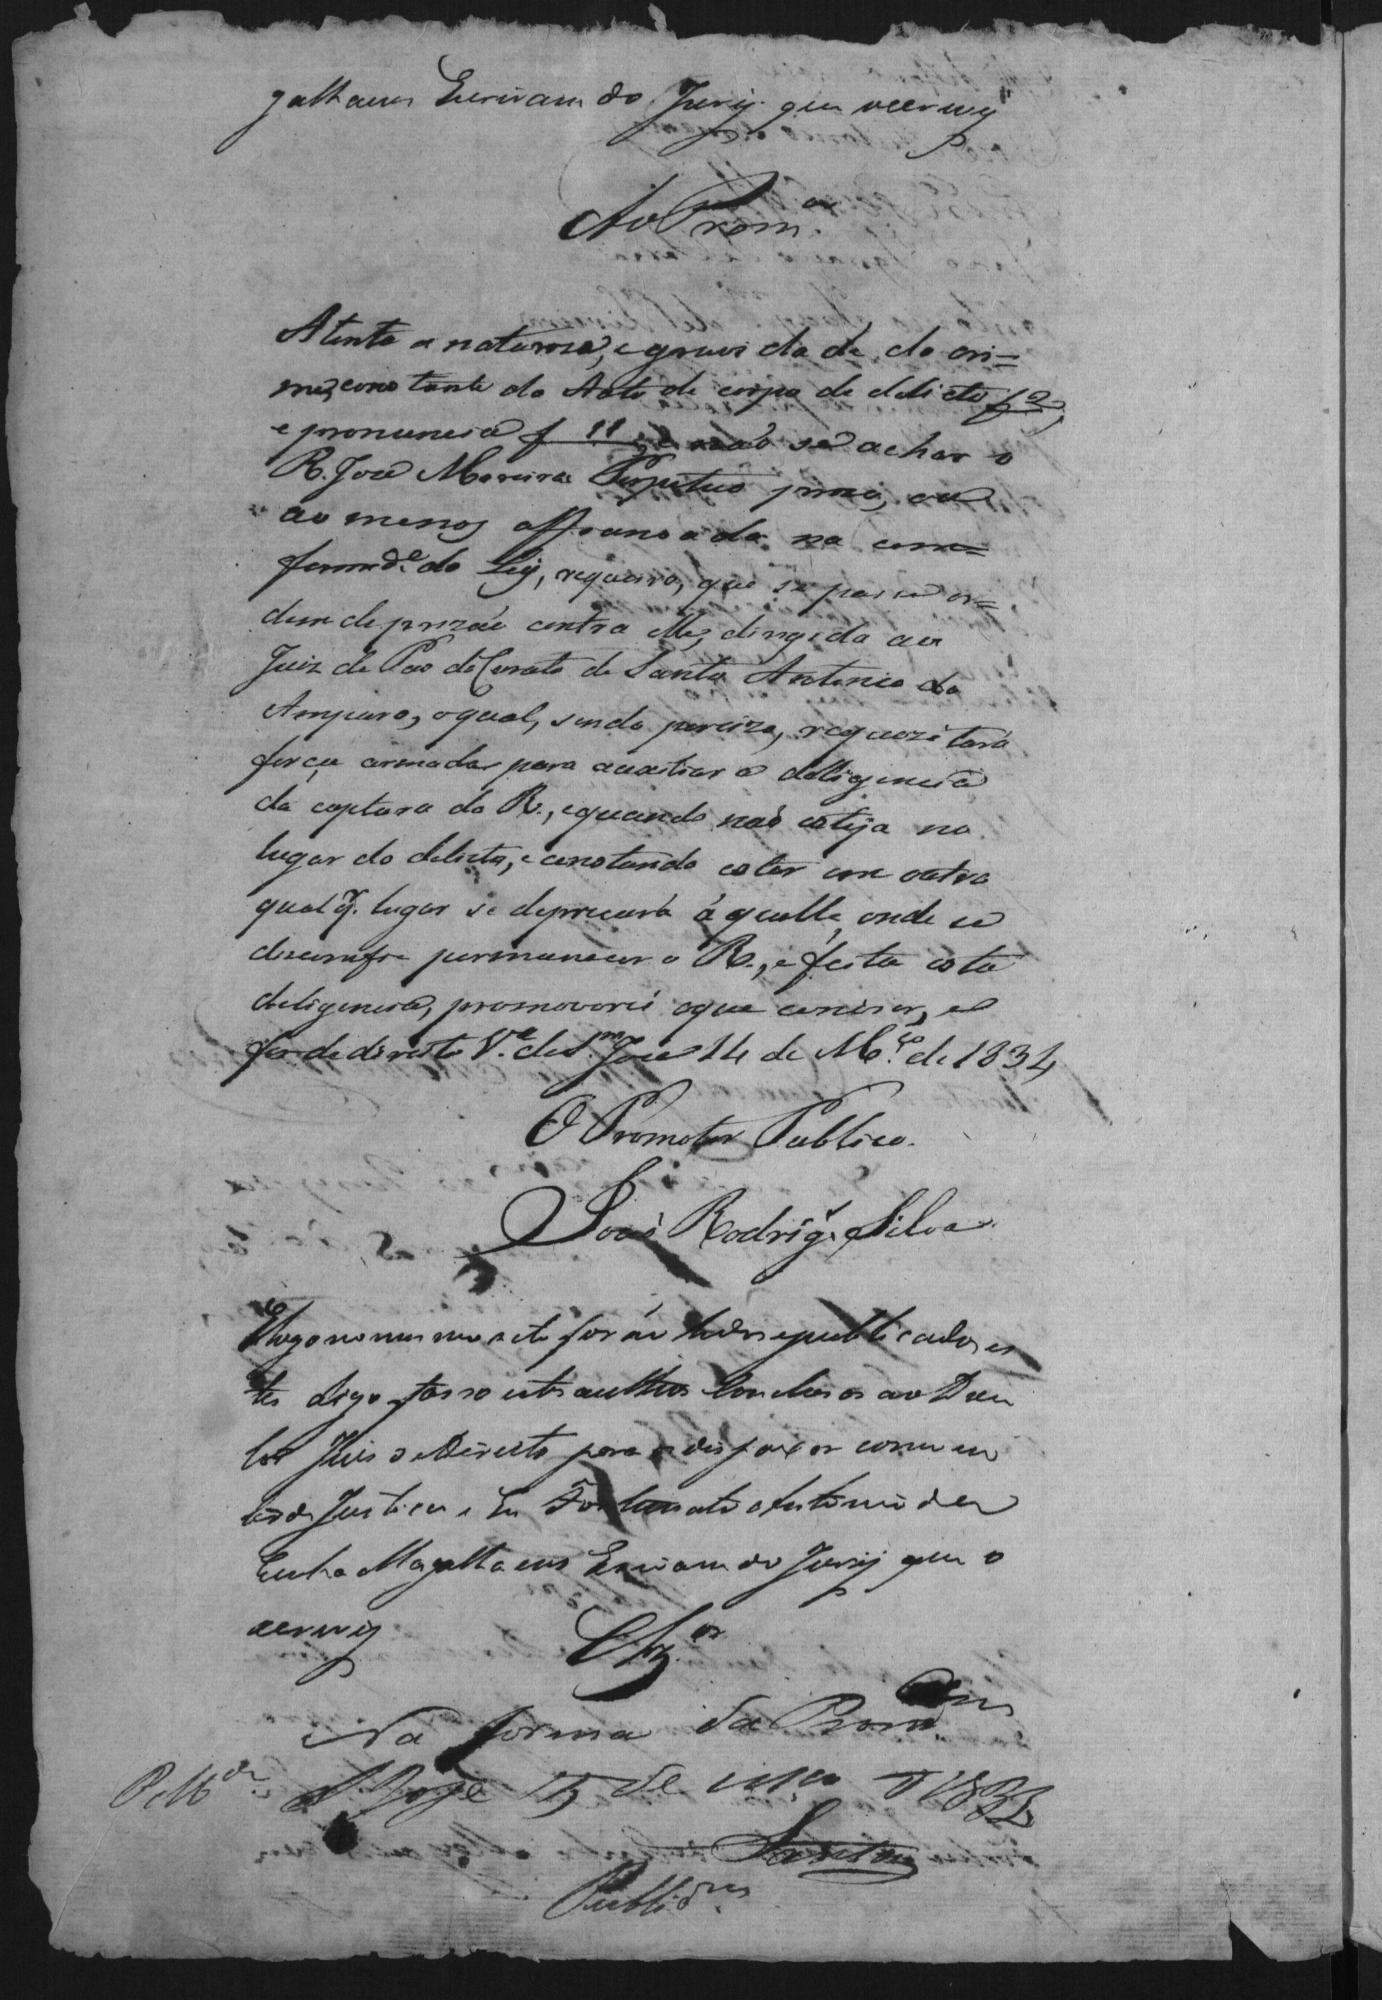 galhaens Escrivam do Jury que escrevy
Ao Prom.or
Attenta a natureza, e gravidade do cri=
me, constante do Auto de corpo de delicto f 2,
e pronuncia f 11, e não se achar o
R. José Moreira Perpetuo prezo, ou
ao menos affiançado na con=
formd.e da Ley, requeiro, que se passe or=
dem de prizão contra elle, dirigida ao
Juiz de Paz do Curato de Santo Antonio do
Amparo, o qual, sendo precizo, requezitará
força armada para auxiliar a delligencia
da captura do R., e quando não esteja no
lugar do delicto, e constando estar em outro
qualq.r lugar se deprecará áquelle, onde se
disconfie permanecer o R., e feita esta
deligencia, promoverei o que convier, e
for de direito V.a de S. José 14 de M.ço de 1834
O Promotor Publico.
João Rodrig.s Silva
E logo no mesmo acto forão dados e publicados es
tes digo fasso estes authos Concluzos ao Dou
tor Juis de Direito para os despaxar como en
tender Justica. Eu Fortunato Antonio da
Cunha Magalhaens Escrivam do Jury que o
escrevy
Clz.os
Na forma da Prom
S. Joze 15 de março d 1834
Santos
Public